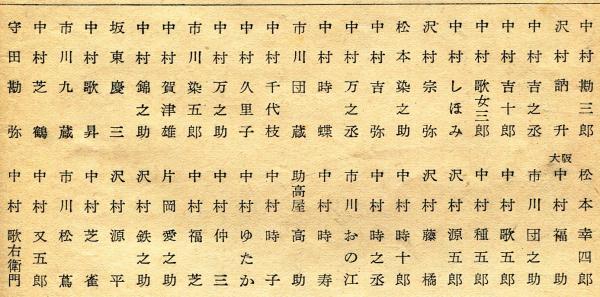 中村勘三郎
沢村訥升
中村吉之丞
中村吉十郎
中村歌女三郎
中村しほみ
沢村宗弥
松本染之助
中村吉弥
中村万之丞
中村時蝶
市川団蔵
中村千代枝
中村久里子
中村万之助
市川染五郎
中村賀津雄
中村錦之助
坂東慶三
中村歌昇
市川九蔵
中村芝鶴
守田勘弥
松本幸四郎
大阪 中村福助
市川団之助
中村歌五郎
中村種五郎
沢村源五郎
沢村藤橘
中村時十郎
中村時之丞
市川おの江
中村時寿
助高屋高助
中村時子
中村ゆたか
中村仲三
中村福芝
片岡愛之助
沢村鉄之助
沢村源平
中村芝雀
市川松蔦
中村又五郎
中村歌右衛門